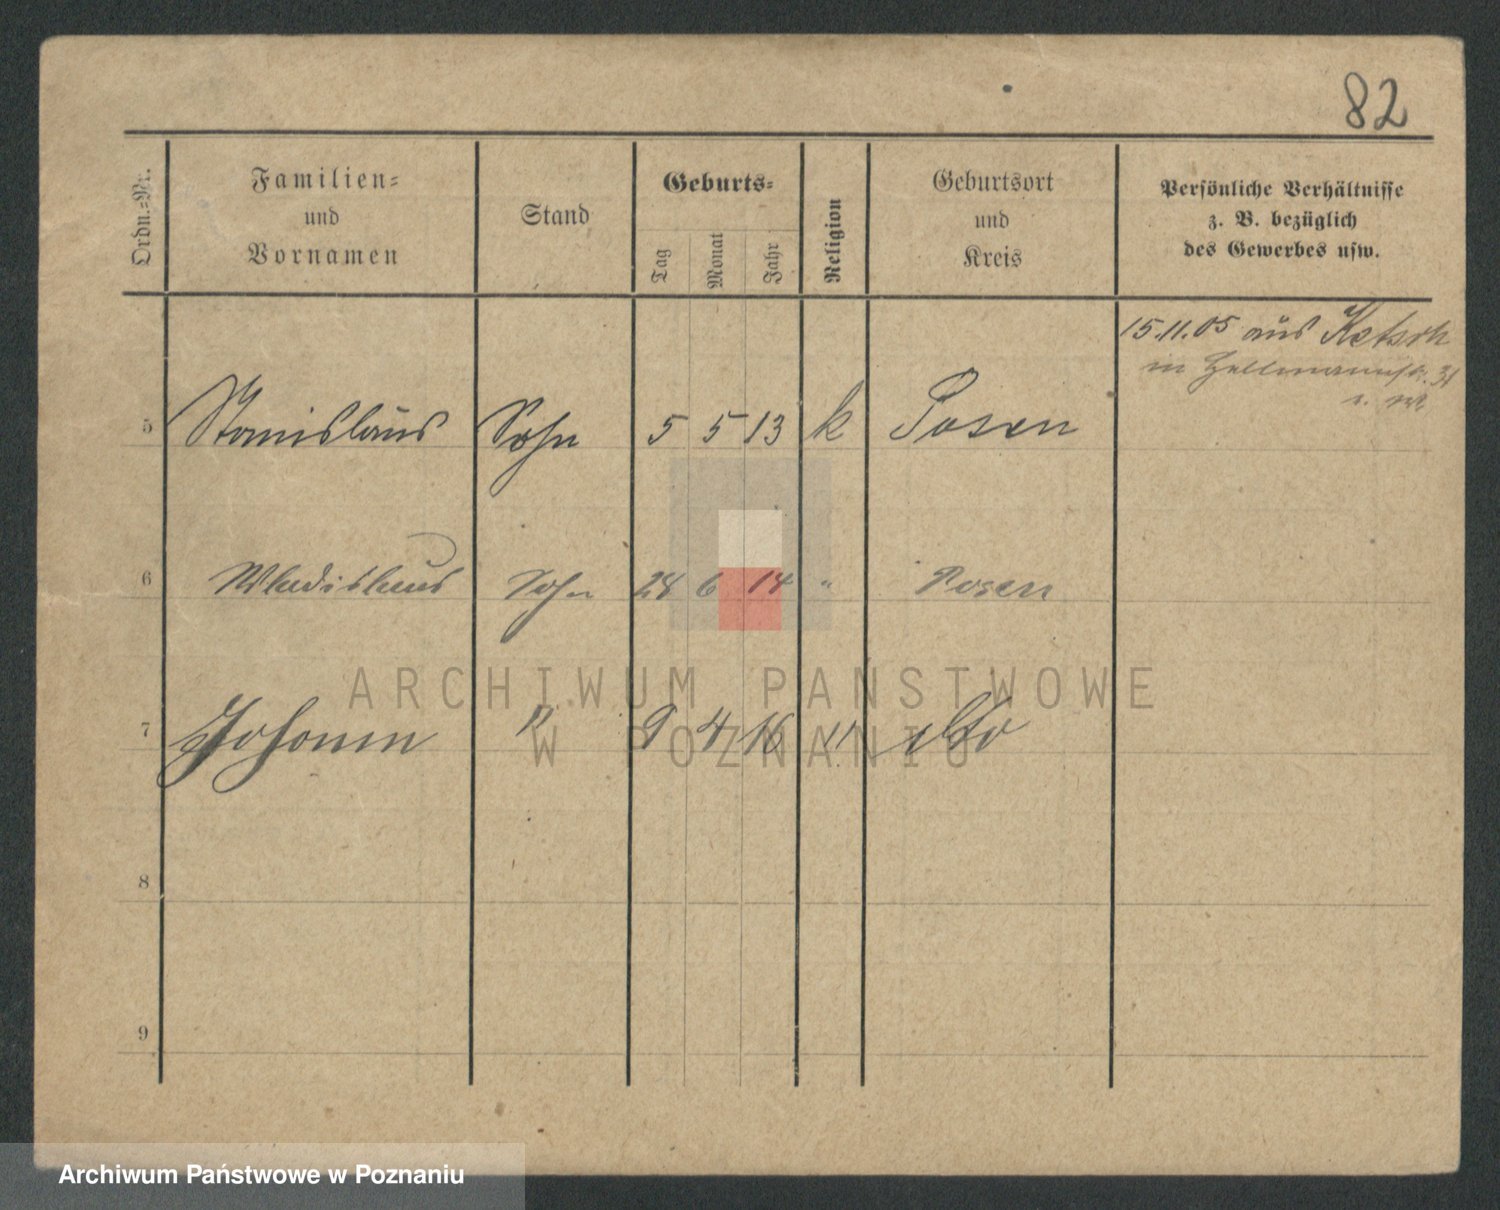 82
Ordn.-Nr.
Familien-
und
Vornamen
Stand
Geburts-
Tag
Monat
Jahr
Religion
Geburtsort
und
Kreis
Persönliche Verhältnisse
z. B. bezüglich
des Gewerbes usw.
15.11.05 aus Ketsch
in 31
5 Stanislaus Sohn 5 5 13 k Posen
6 Wladislaus Sohn 28 6 14 " Posen
7 Johann " 9 4 16 " dto
8
9
ARCHIWUM PAŃSTWOWE
W POZNANIU
Archiwum Państwowe w Poznaniu